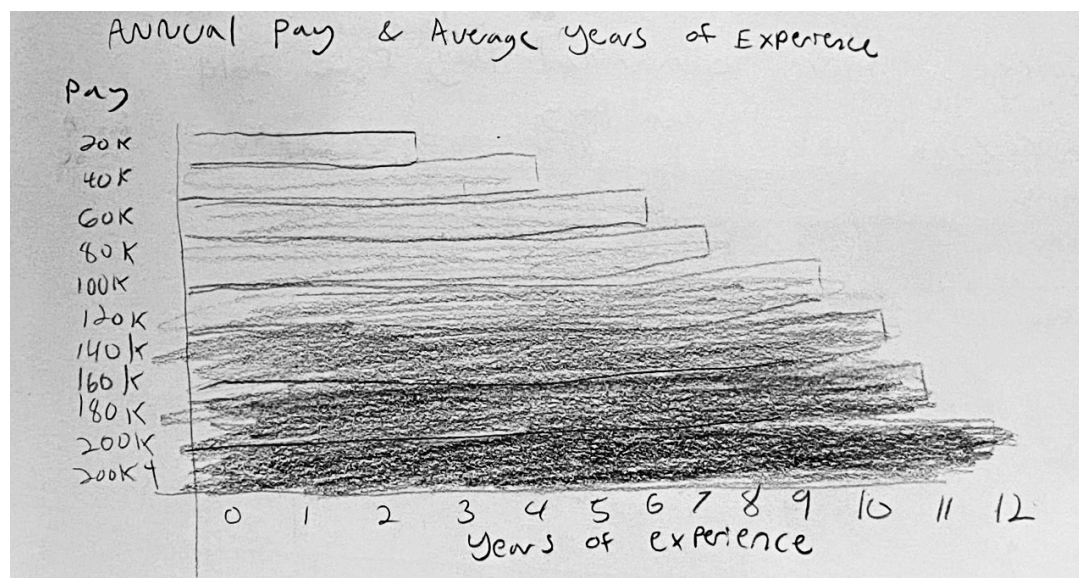 Annual Pay & Average years of Experience
Pay
20K
40K
60K
80K
100K
120K
140K
160K
180K
200K
200K+
0 1 2 3 4 5 6 7 8 9 10 11 12
years of experience